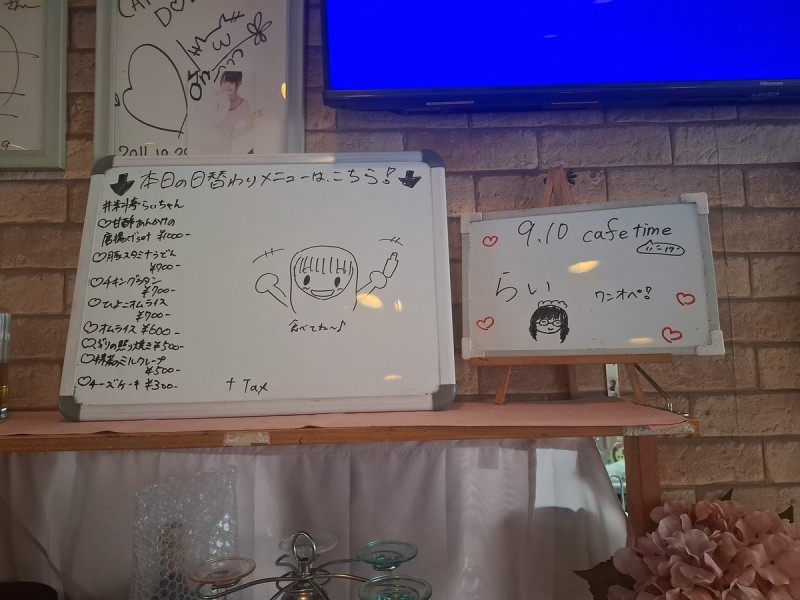 2011.10.29
本日の日替わりメニューは、こちら!
#料亭らいちゃん
♡甘酢あんかけの
唐揚げset ¥1000-
♡豚スタミナうどん
¥700-
♡チキングラタン
¥700-
♡ひよこオムライス
¥700-
♡オムライス ¥600-
♡ぶりの照り焼き ¥500-
♡抹茶のミルクレープ
¥500-
♡チーズケーキ ¥300-
食べてね〜♪
+ Tax
Hisense
9.10 cafe time
らい
ワンオペ!